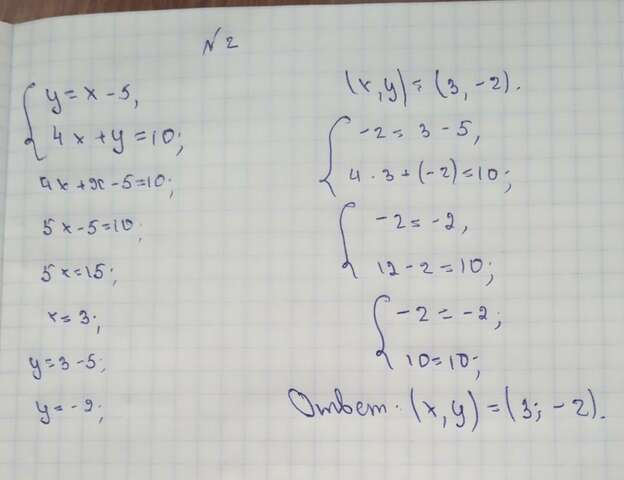 №2
y = x - 5,
4x + y = 10;
4x + x - 5 = 10;
5x - 5 = 10;
5x = 15;
x = 3;
y = 3 - 5;
y = -2;
(x, y) = (3, -2).
-2 = 3 - 5,
4 · 3 + (-2) = 10;
-2 = -2,
12 - 2 = 10;
-2 = -2;
10 = 10;
Ответ: (x, y) = (3; -2).